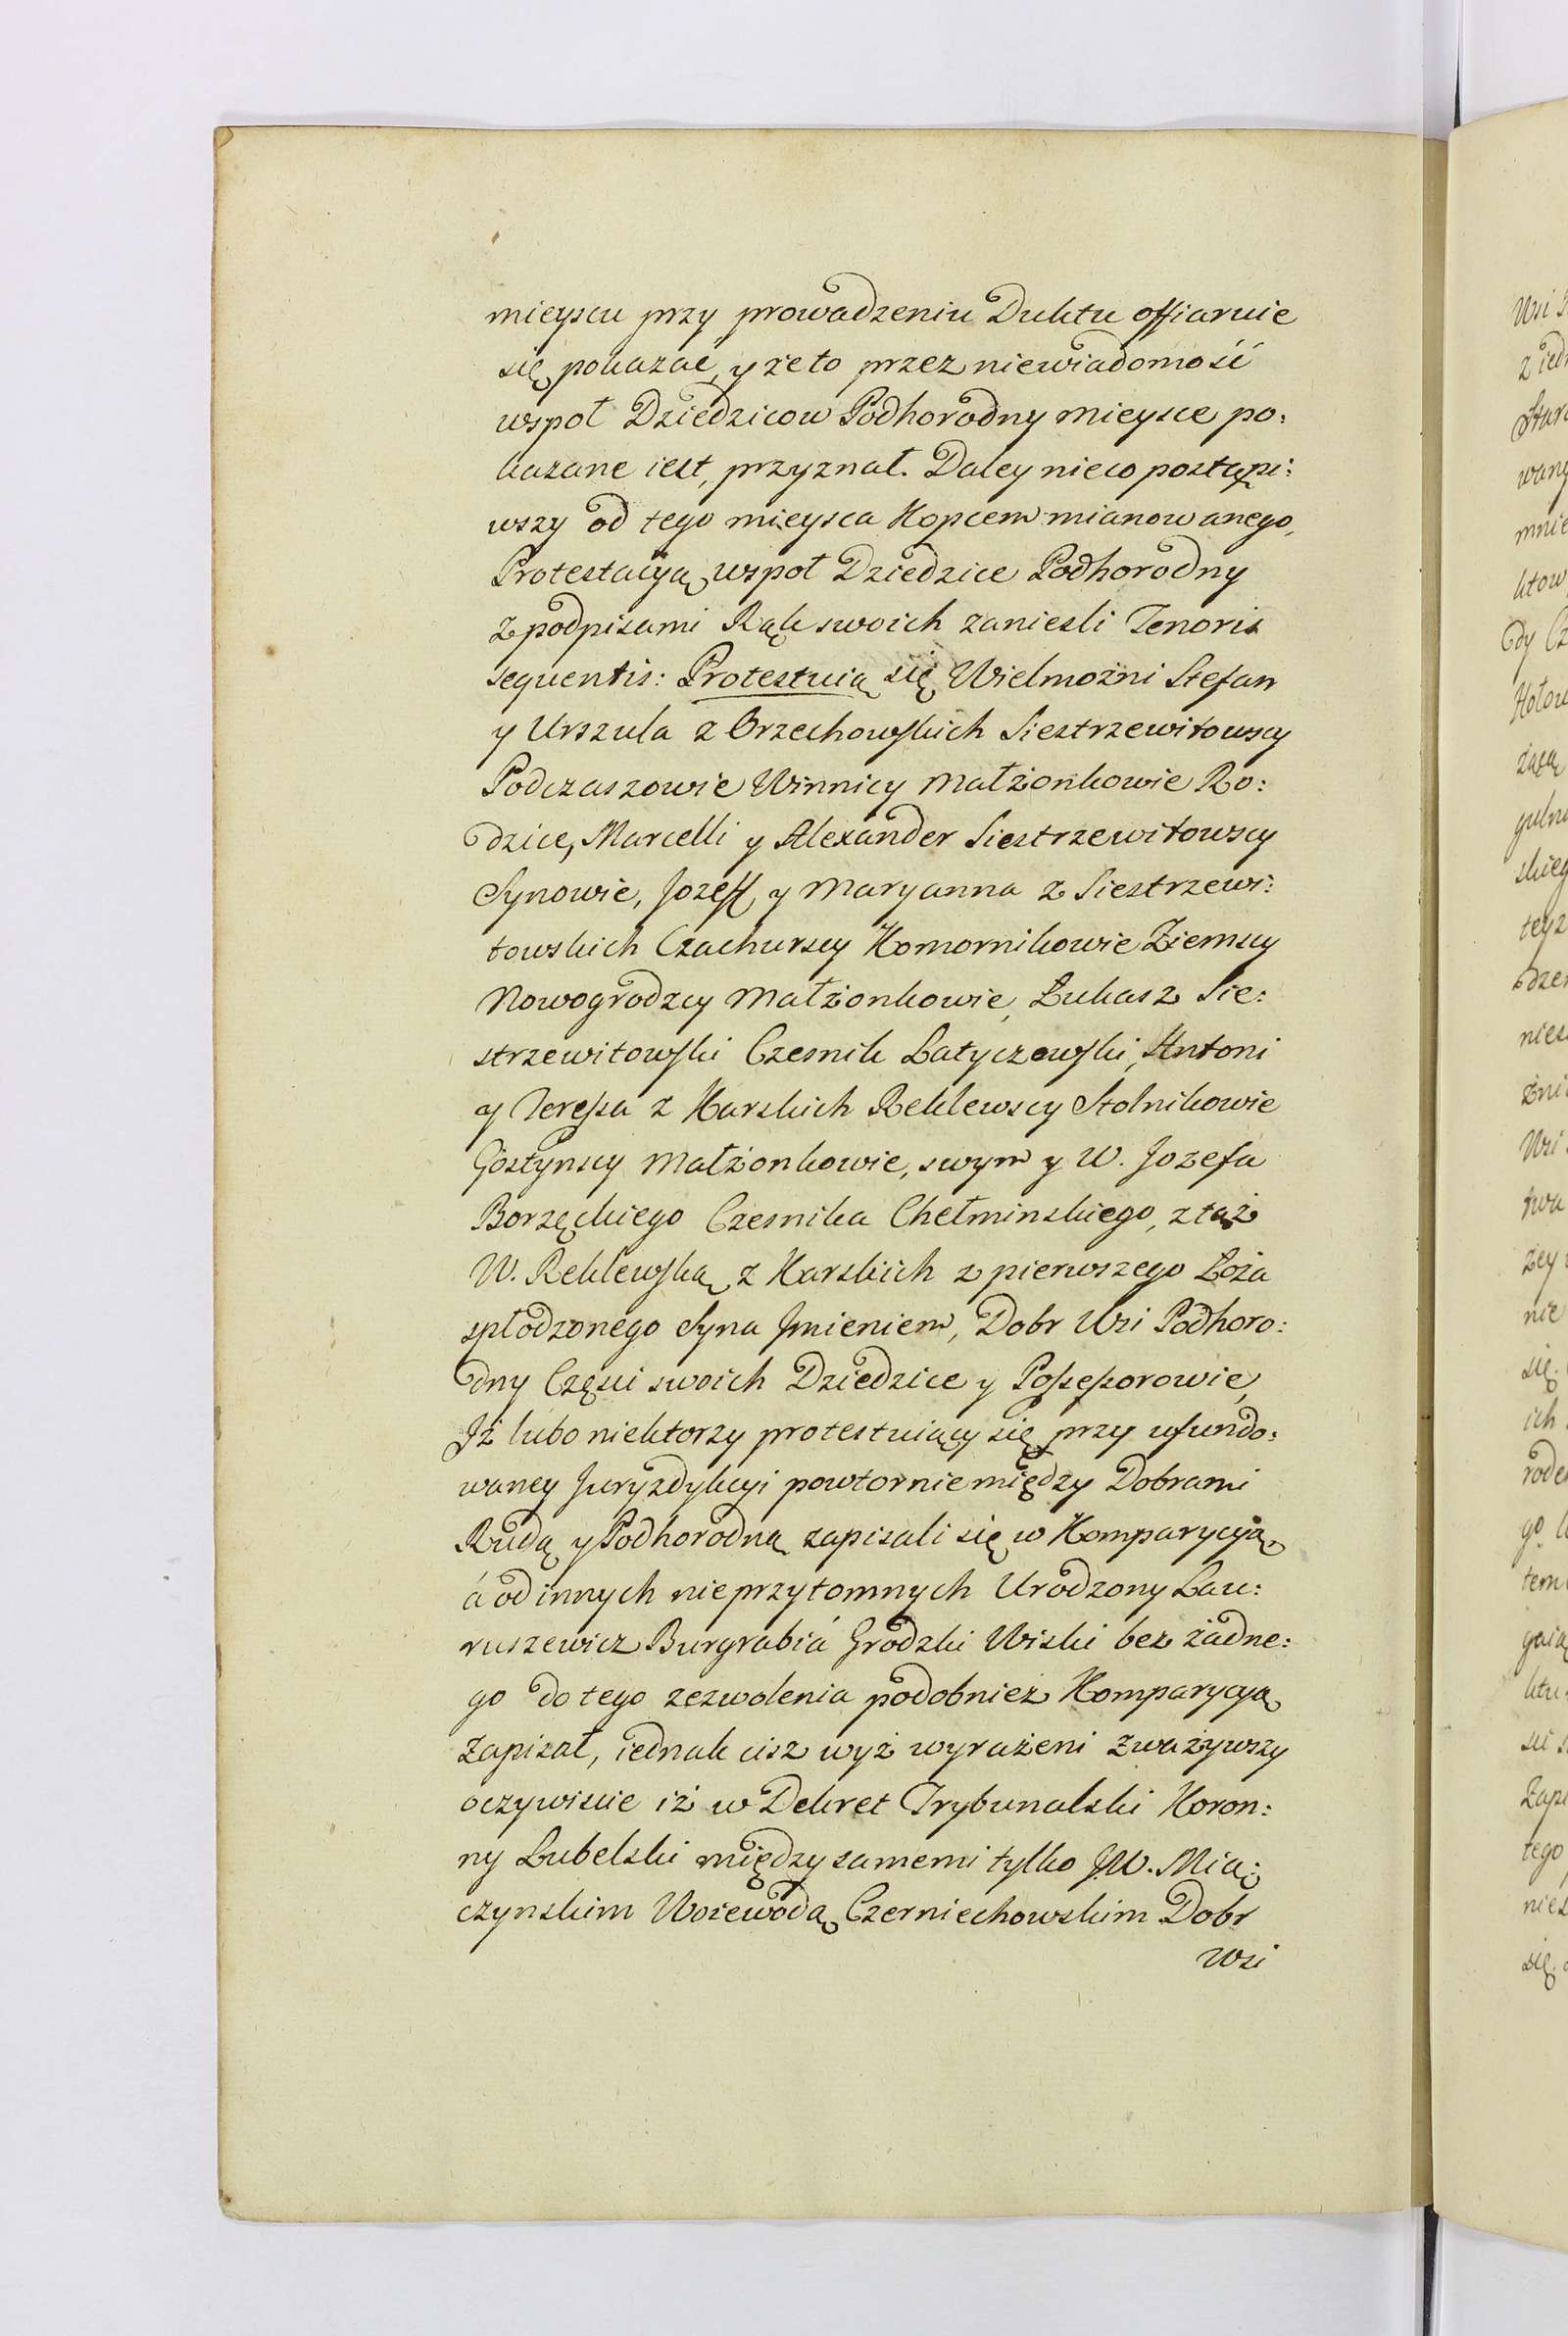 mieyscu przy prowadzeniu Duktu offiaruie
się pokazać, y że to przez niewiadomość
wspoł Dziedzicow Podhorodny mieysce po:
kazane iest, przyznał. Daley nieco postąpi:
wszy od tego mieysca Kopcem mianowanego,
Protestacyą wspoł Dziedzice Podhorodny
z podpisami Rąk swoich zaniesli Tenoris
sequentis: Protestuią się Wielmożni Stefan
y Urszula z Orzechowskich Siestrzewitowscy
Podczaszowie Winnicy Małżonkowie Ro:
dzice, Marcelli y Alexander Siestrzewitowscy
Synowie, Jozeff y Maryanna z Siestrzewi:
towskich Czachurscy Komornikowie Ziemscy
Nowogrodzcy Małżonkowie, Łukasz Sie:
strzewitowski Czesnik Latyczowski, Antoni
y Teressa z Karskich Reklewscy Stolnikowie
Gostynscy Małżonkowie, swym y W. Jozefa
Borzęckiego Czesnika Chełminskiego, z tąż
W. Reklewską z Karskich z pierwszego Łoża
spłodzonego Syna Jmieniem, Dobr Wsi Podhoro:
dny Części swoich Dziedzice y Possessorowie,
Jż lubo niektorzy protestuiący się przy ufundo:
waney Juryzdykcyi powtornie między Dobrami
Rudą y Podhorodną zapisali się w Komparycyą,
á od innych nieprzytomnych Urodzony Lau:
ruszewicz Burgrabiá Grodzki Wiski bez żadne:
go do tego zezwolenia podobnież Komparycyą
Zapisał, iednak cisz wyż wyrażeni zważywszy
oczywiscie iż w Dekret Trybunalski Koron:
ny Lubelski między samemi tylko JW. Mią:
czynskim Woiewodą Czerniechowskim Dobr
Wsi